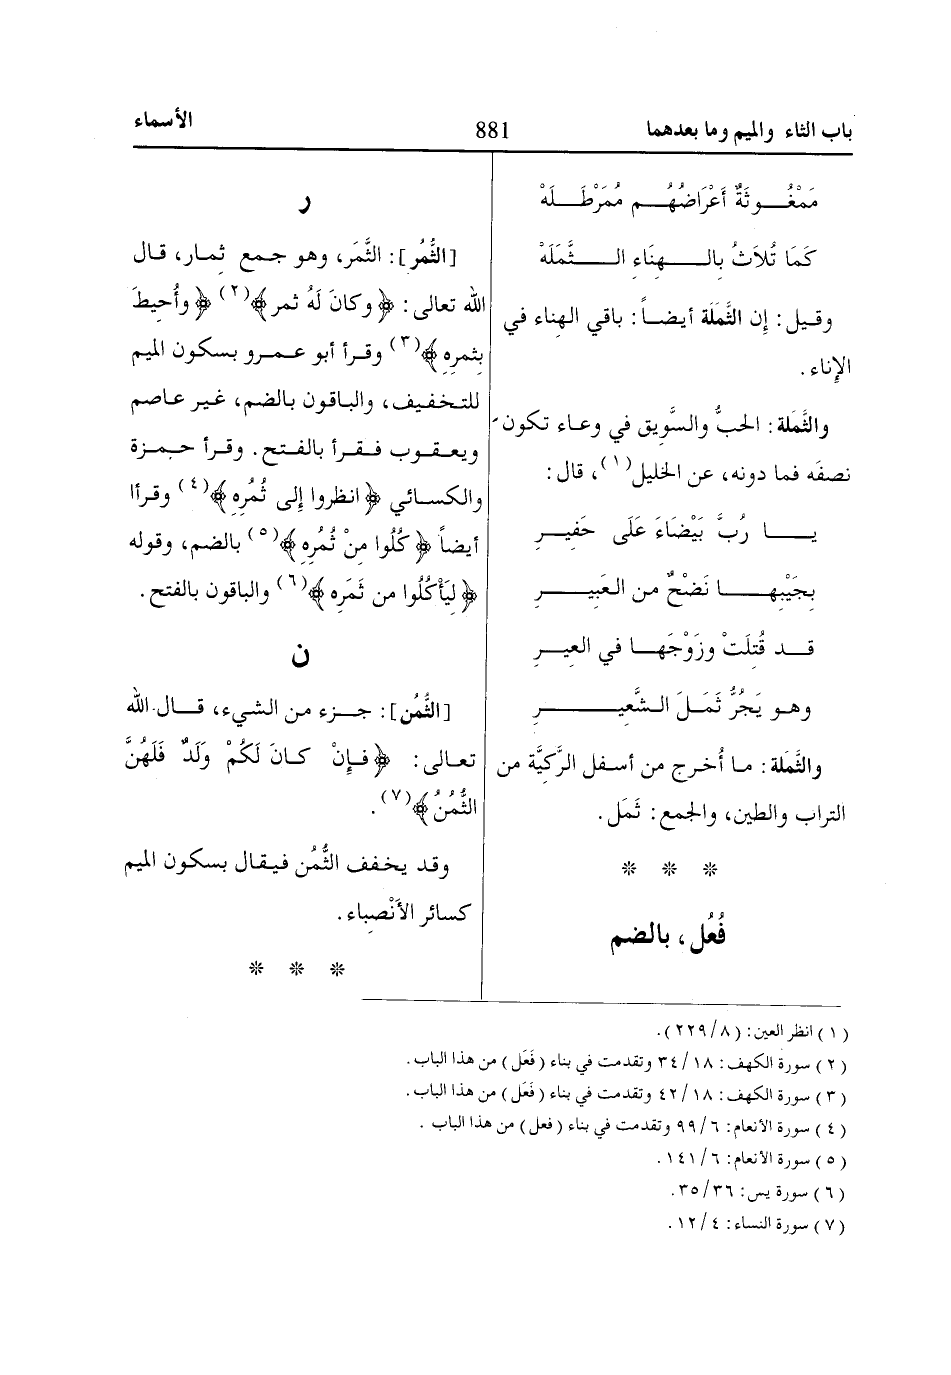 باب الثاء والميم وما بعدهما 881 الأسماء
مَمْغُوثَةٌ أَعْرَاضُهُم مُمَرْطَلَهْ
كَمَا تُلاَثُ بالهِنَاءِ الثَّمَلَهْ
وقيل: إِن الثَّمَلَة أيضاً: باقي الهِناء في
الإِناء.
والثَّمَلة: الحبُّ والسَّويق في وعاء تكون
نصفَه فما دونه، عن الخليل(١)، قال:
يا رُبَّ بَيْضَاءَ عَلَى حَفِيرِ
بِجَيْبِهَا نَضْحٌ من العَبِيرِ
قد قُتِلَتْ وزَوْجَها في العيرِ
وهو يَجُرُّ ثَمَلَ الشَّعِيرِ
والثَّمَلة: ما أُخرج من أسفل الرَّكيَّة من
التراب والطين، والجمع: ثَمَل.
* * *
فُعُل، بالضم
ر
[الثُّمُر]: الثَّمَر، وهو جمع ثِمار، قال
الله تعالى: ﴿وكانَ لَهُ ثمر﴾(٢) ﴿وأُحيطَ
بثمرِهِ﴾(٣) وقرأ أبو عمرو بسكون الميم
للتخفيف، والباقون بالضم، غير عاصم
ويعقوب فقرأ بالفتح. وقرأ حمزة
والكسائي ﴿انظروا إِلى ثُمُرِه﴾(٤) وقرأا
أيضاً ﴿كُلُوا مِنْ ثُمُرِهِ﴾(٥) بالضم، وقوله
﴿لِيَأْكُلُوا من ثَمَرِه﴾(٦) والباقون بالفتح.
ن
[الثُّمُن]: جزء من الشيء، قال الله
تعالى: ﴿فإِنْ كانَ لَكُمْ وَلَدٌ فَلَهُنَّ
الثُّمُنُ﴾(٧).
وقد يخفف الثُّمُن فيقال بسكون الميم
كسائر الأَنْصِباء.
* * *
(١) انظر العين: (٢٢٩/٨).
(٢) سورة الكهف: ٣٤/١٨ وتقدمت في بناء (فَعَل) من هذا الباب.
(٣) سورة الكهف: ٤٢/١٨ وتقدمت في بناء (فَعَل) من هذا الباب.
(٤) سورة الأنعام: ٩٩/٦ وتقدمت في بناء (فعل) من هذا الباب .
(٥) سورة الأنعام: ١٤١/٦.
(٦) سورة يس: ٣٥/٣٦.
(٧) سورة النساء: ١٢/٤.